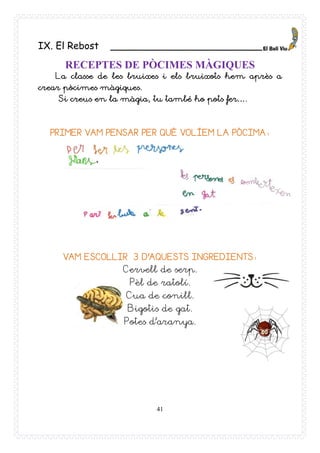 IX. El Rebost
El Beli Viu
RECEPTES DE PÒCIMES MÀGIQUES
La classe de les bruixes i els bruixots hem après a
crear pòcimes màgiques.
Si creus en la màgia, tu també ho pots fer....
PRIMER VAM PENSAR PER QUÈ VOLÍEM LA PÒCIMA:
per fer les persones
les persones es
en gat
sent.
VAM ESCOLLIR 3 D'AQUESTS INGREDIENTS:
Cervell de serp.
Pèl de ratolí.
Cua de conill.
Bigotis de gat.
Potes d'aranya.
41